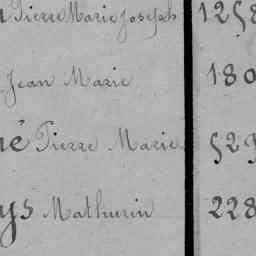 Pierre Marie Joseph 125
Jean Marie 180
né Pierre Marie 529
ys Mathurin 228